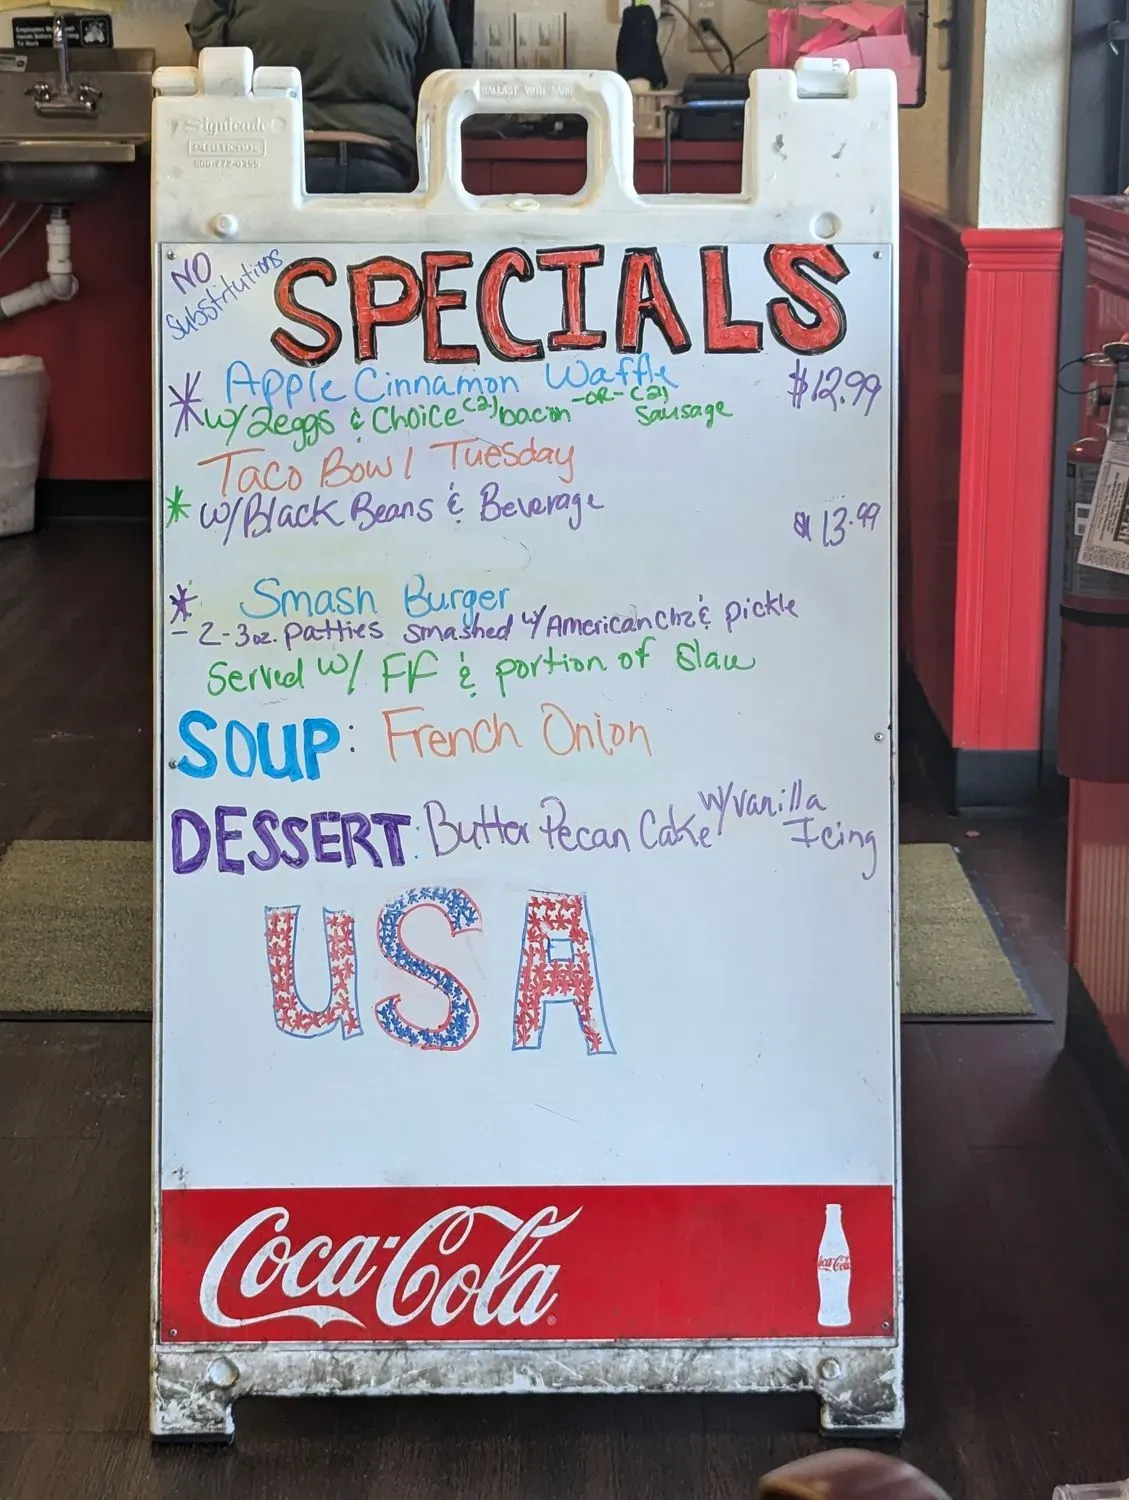 Employees Must Wash
Hands Before Returning
To Work
BALLAST WITH SAND
Signicade
PLASTICADE
800-772-0355
NO
Substitutions
SPECIALS
* Apple Cinnamon Waffle $12.99
w/ 2eggs & Choice (2) bacon -OR- (2) Sausage
Taco Bowl Tuesday
* w/Black Beans & Beverage $13.99
* Smash Burger
- 2-3oz. patties smashed w/American chz & pickle
Served w/ FF & portion of Slaw
SOUP: French Onion
DESSERT: Butter Pecan Cake w/vanilla
Icing
USA
Coca-Cola
Coca-Cola